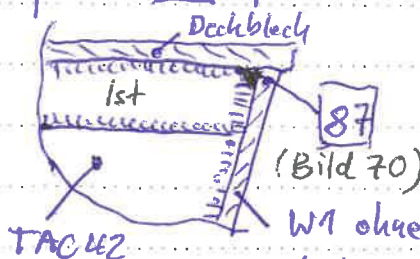 Deckblech
ist
87
(Bild 70)
W1 ohne